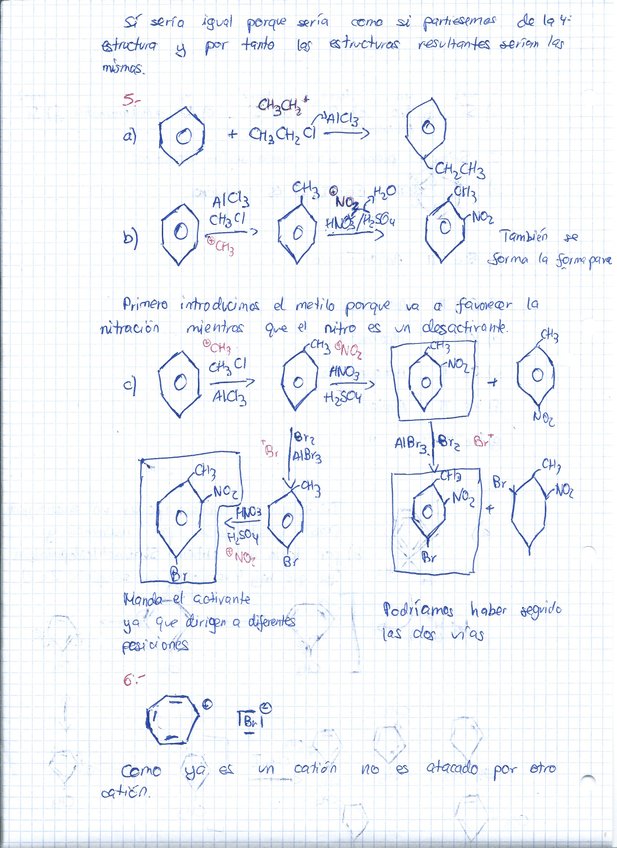 Sí sería igual porque sería como si partiesemos de la 4ª
estructura y por tanto las estructuras resultantes serían las
mismas.
5.-
CH3CH2+
a) + CH3CH2Cl AlCl3
CH2CH3
b) AlCl3 CH3 ⊕NO2 H2O CH3
CH3Cl HNO3/H2SO4 NO2
⊕CH3
También se
forma la forma para
Primero introducimos el metilo porque va a favorecer la
nitración mientras que el nitro es un desactivante.
c) ⊕CH3 CH3 ⊕NO2 CH3 CH3
CH3Cl HNO3 NO2 +
AlCl3 H2SO4 NO2
+Br Br2 AlBr3 AlBr3 Br2 Br+
CH3 CH3 CH3 CH3
NO2 HNO3 NO2 + Br NO2
H2SO4
⊕NO2
Br Br Br
Manda el activante
ya que dirigen a diferentes
posiciones
Podríamos haber seguido
las dos vías
6.-
⊕ Br ⊖
Como ya es un catión no es atacado por otro
catión.